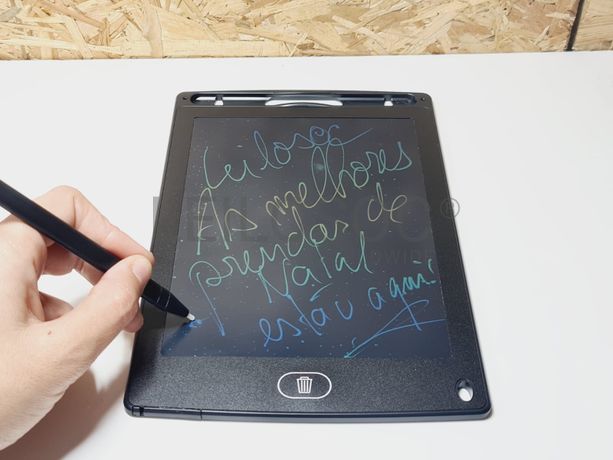 Leilosoc
As melhores
prendas de
Natal
estão aqui!